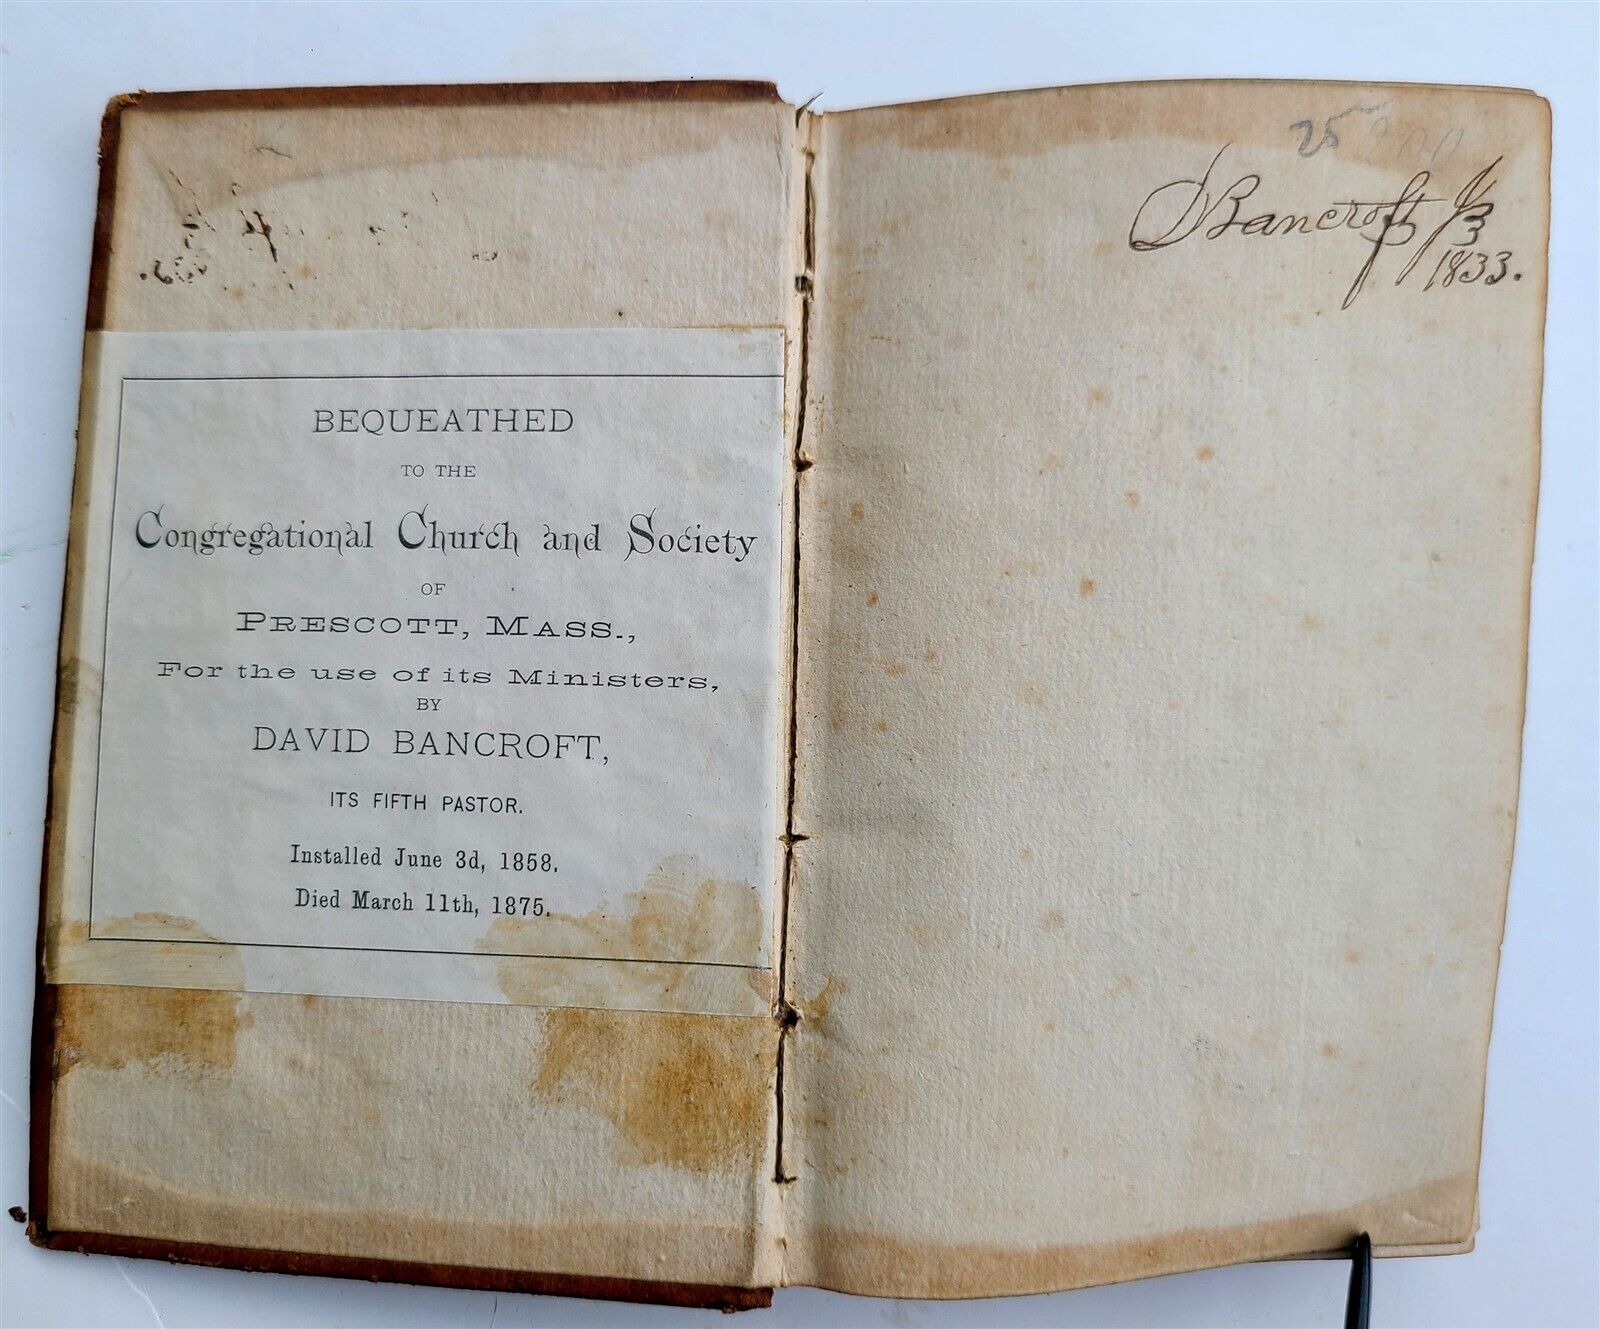 BEQUEATHED
TO THE
Congregational Church and Society
OF
PRESCOTT, MASS.,
For the use of its Ministers,
BY
DAVID BANCROFT,
ITS FIFTH PASTOR.
Installed June 3d, 1858.
Died March 11th, 1875.
25
D Bancroft
1833.